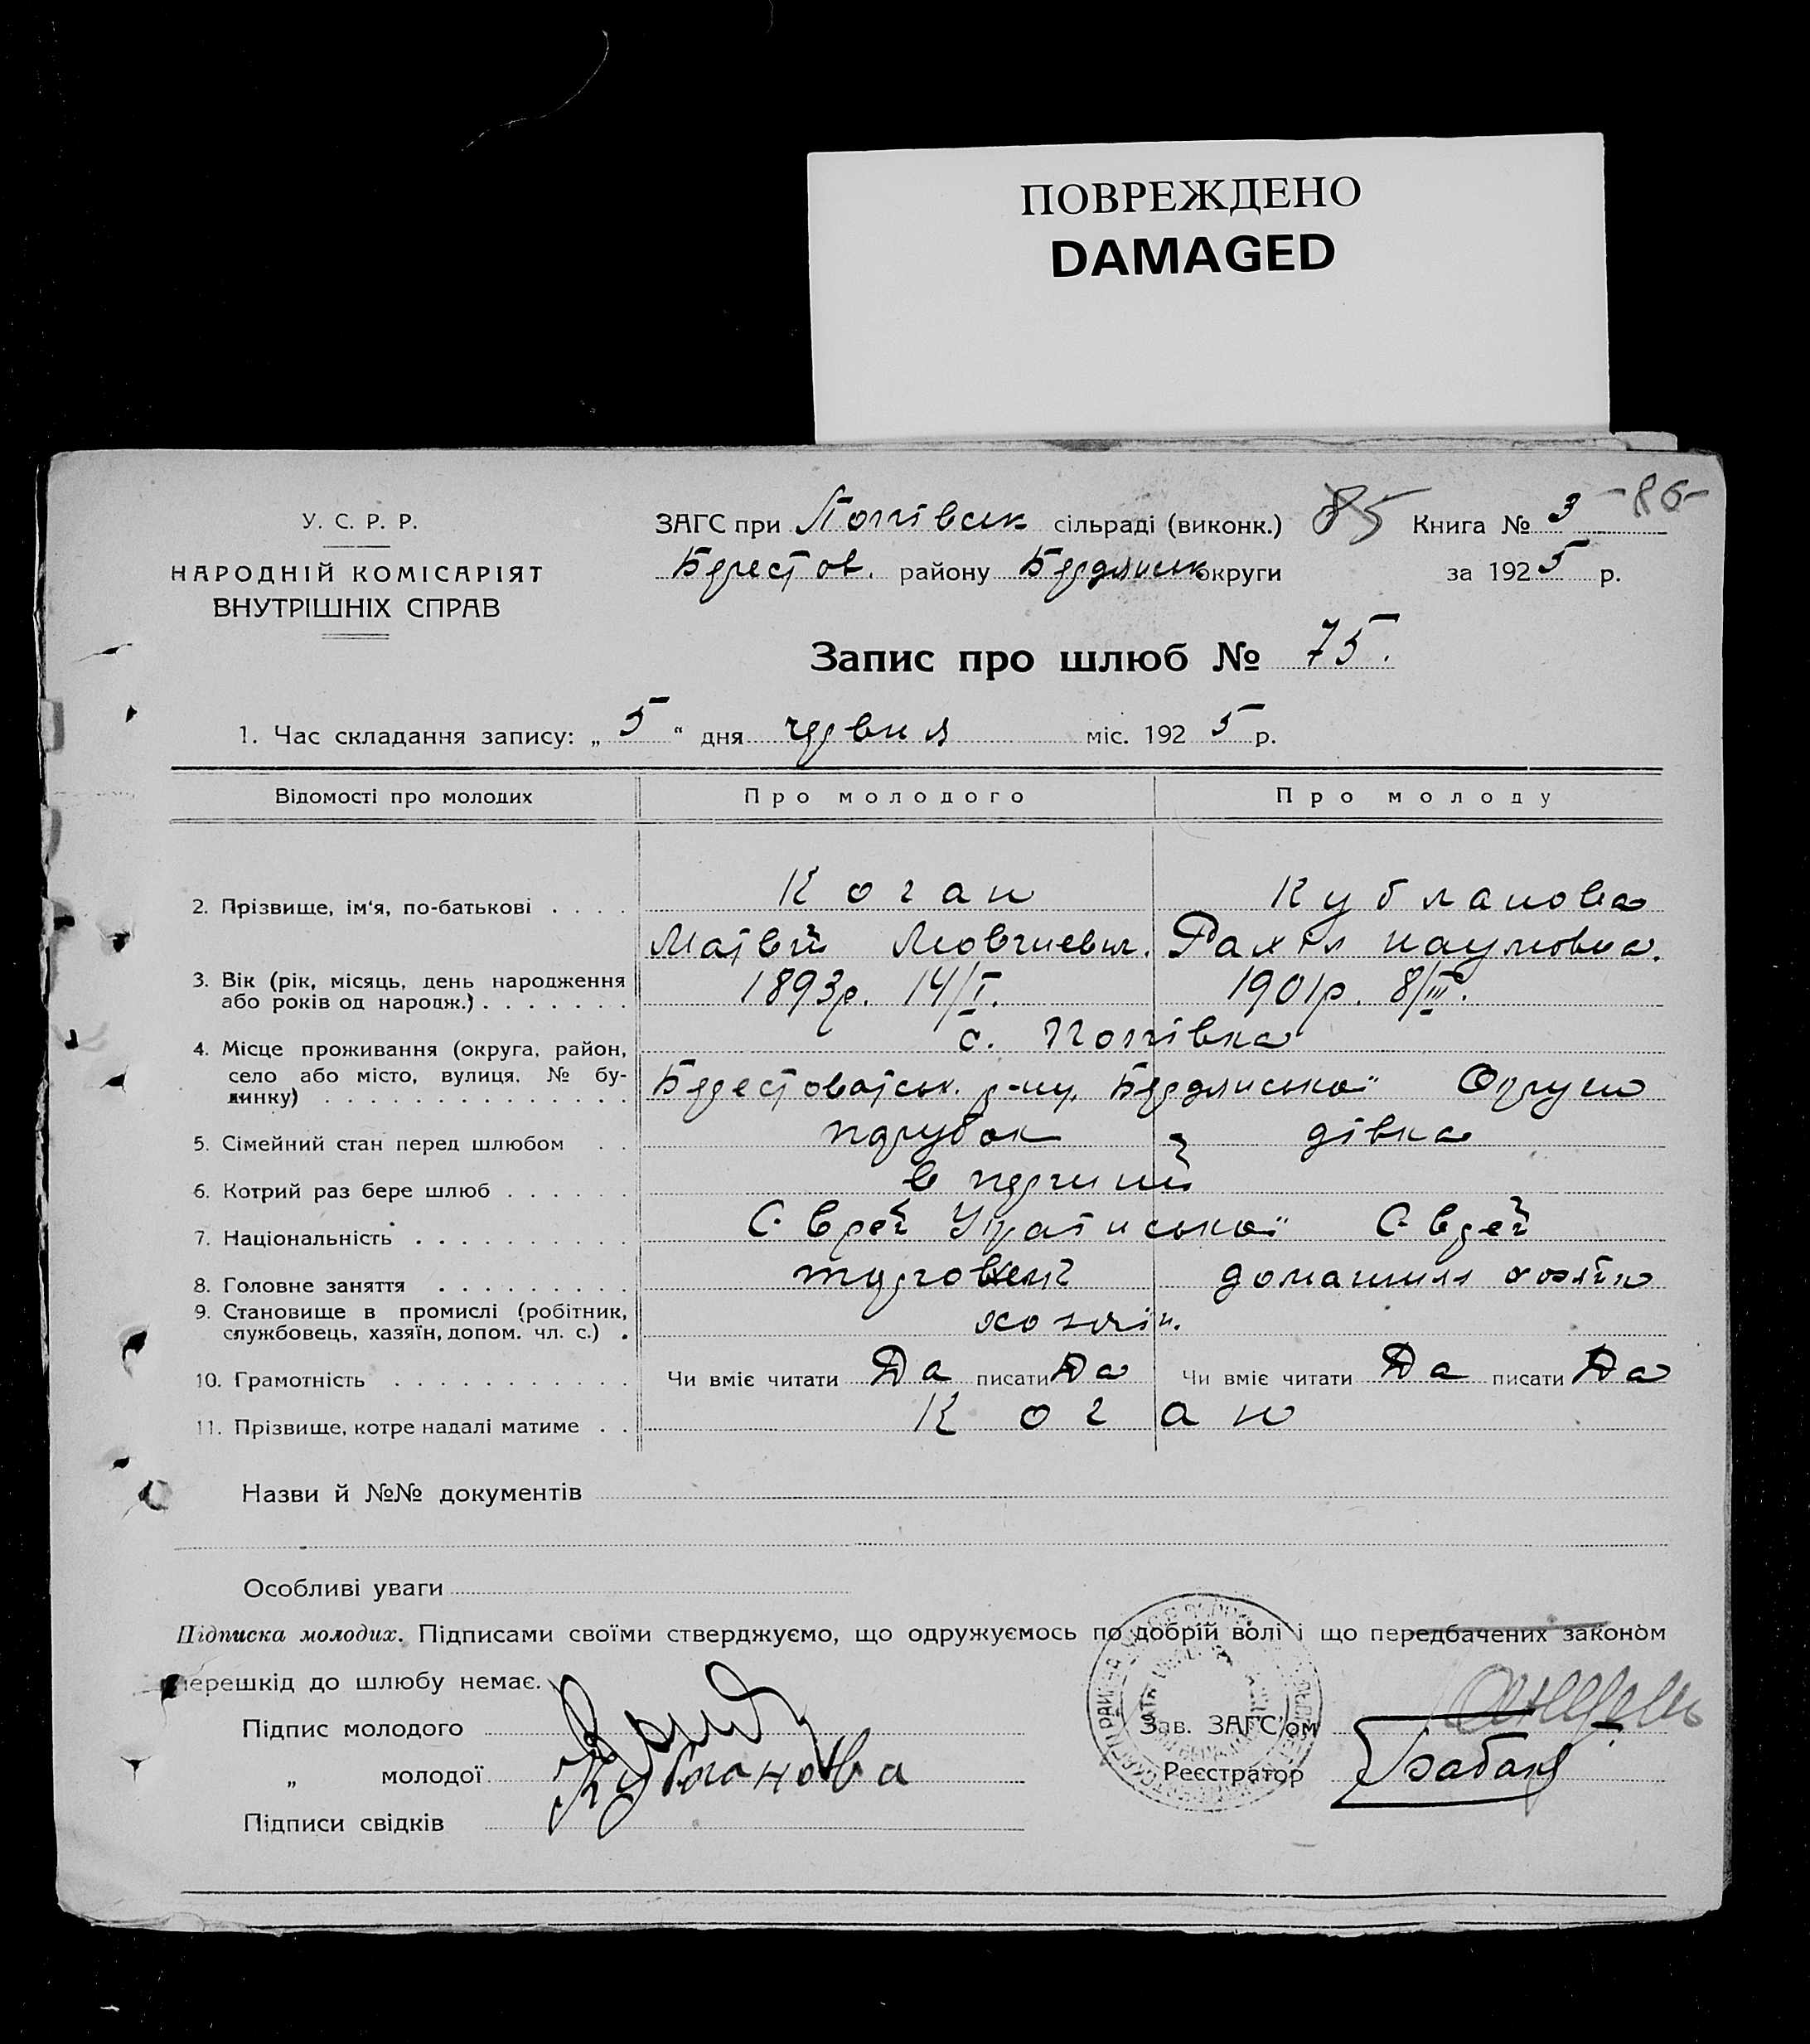 ПОВРЕЖДЕНО
DAMAGED
У. С. Р. Р.
НАРОДНІЙ КОМІСАРІЯТ
ВНУТРІШНІХ СПРАВ
ЗАГС при сільраді (виконк.) 85 Книга № 3 -86-
Берестов. району Бердянськ округи за 1925 р.
Запис про шлюб № 75.
1. Час складання запису: „ 5 “ дня червня міс. 1925 р.
Відомості про молодих Про молодого Про молоду
2. Прізвище, ім‘я, по-батькові . . . . Коган Кубланова
Матвій Рахіл Наумовна.
3. Вік (рік, місяць, день народження
або років од народж.) . . . . . . . 1893р. 14/I. 1901р. 8/III.
4. Місце проживання (округа, район, с.
село або місто, вулиця. № бу-
динку) . . . . . . . . . . . . . . Берестоватськ. р-ну, Бердянської Округи
5. Сімейний стан перед шлюбом . . парубок дівка
6. Котрий раз бере шлюб . . . . . . в перший
7. Національність . . . . . . . . . . Єврей Української Єврей
8. Головне заняття . . . . . . . . . домашнля
9. Становище в промислі (робітник,
службовець, хазяїн, допом. чл. с.) . хозяїн.
10. Грамотність . . . . . . . . . . . Чи вміє читати Да писати Да Чи вміє читати Да писати Да
11. Прізвище, котре надалі матиме . . Коган
Назви й №№ документів
Особливі уваги
Підписка молодих. Підписами своїми стверджуємо, що одружуємось по добрій волі і що передбачених законом
перешкід до шлюбу немає.
Підпис молодого Зав. ЗАГС’ом
„ молодої Кубланова Реєстратор
Підписи свідків